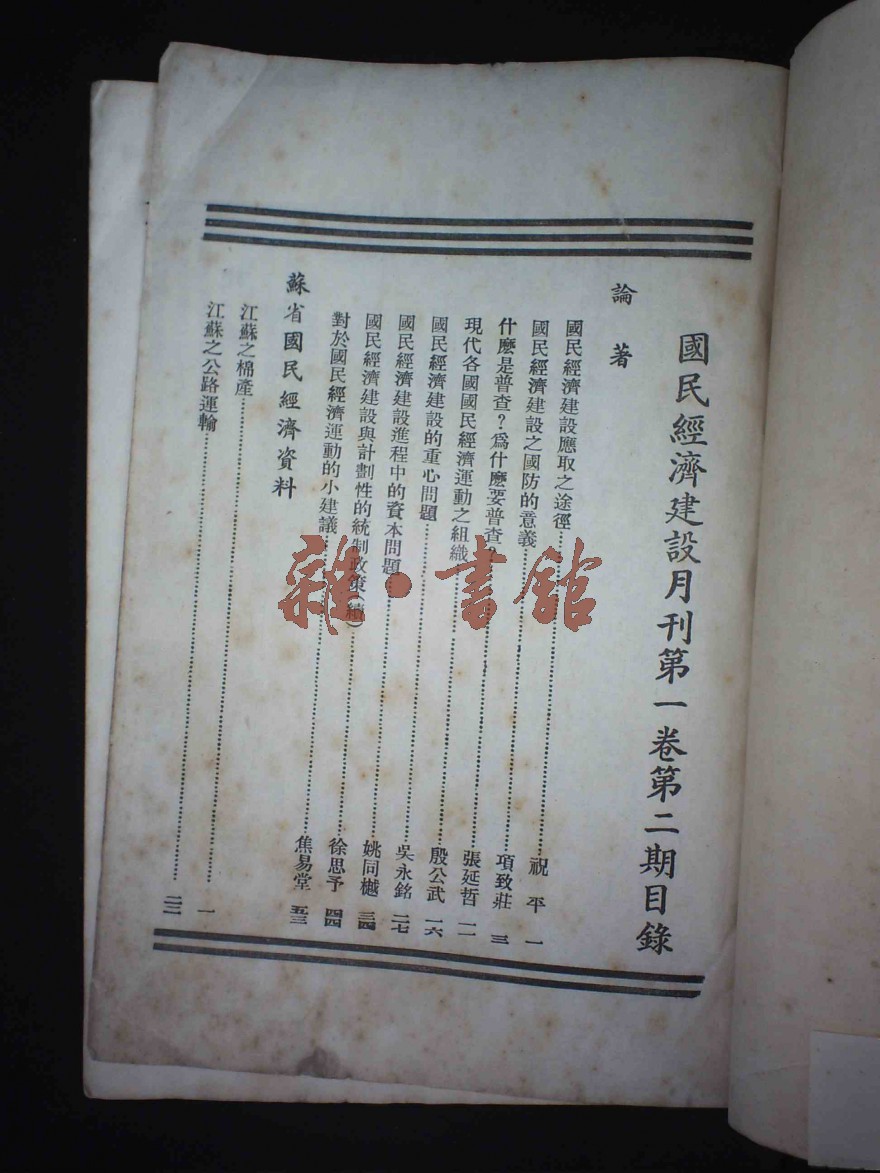 國民經濟建設月刊第一卷第二期目錄
論著
國民經濟建設應取之途徑……祝平 一
國民經濟建設之國防的意義……項致莊 三
什麼是普查?爲什麼要普查?……張延哲 一一
現代各國國民經濟運動之組織……殷公武 一六
國民經濟建設的重心問題……吳永銘 二七
國民經濟建設進程中的資本問題……姚同樾 三四
國民經濟建設與計劃性的統制政策(續)……徐思予 四四
對於國民經濟運動的小建議……焦易堂 五三
蘇省國民經濟資料
江蘇之棉產……一
江蘇之公路運輸……二二
雜·書館